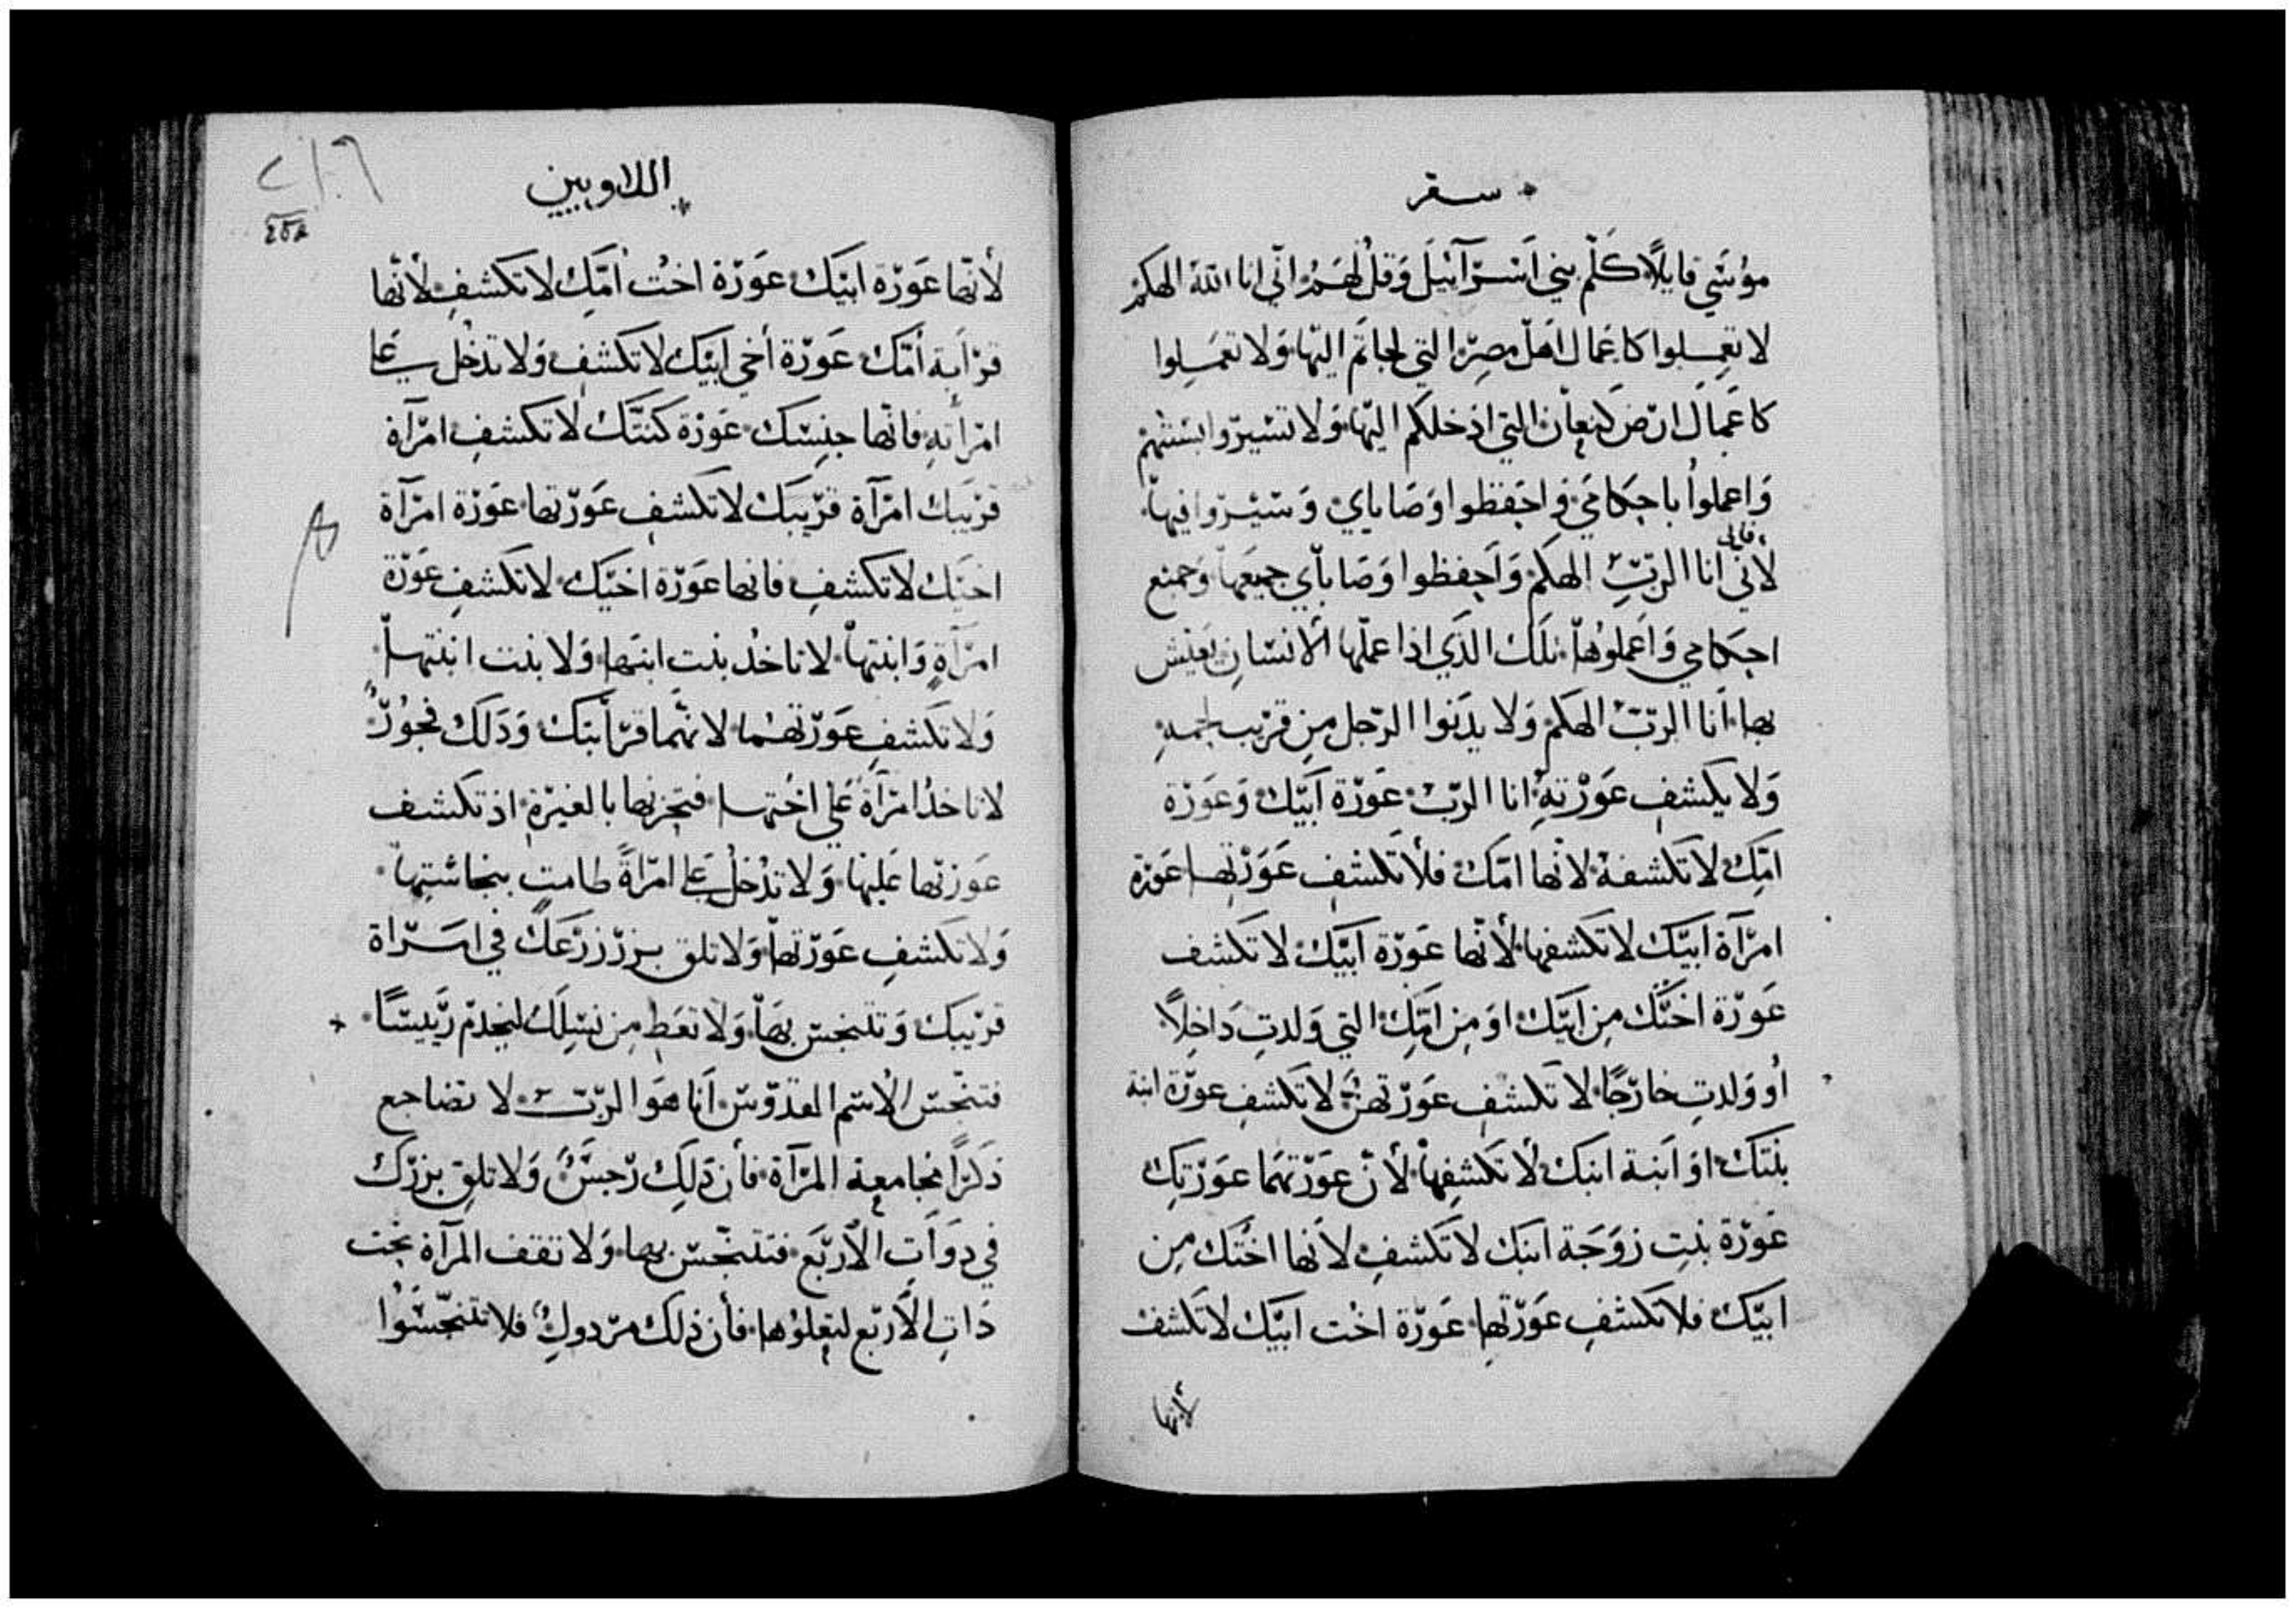 سفر
موسى قايلا كلم بني اسرآئيل وقل لهم اني انا الله الهكم
لا تعملوا كاعمال اهل مصر التي لجاتم اليها ولا تعملوا
كاعمال ارض كنعان التي ادخلكم اليها ولا تسيروا بسننهم
واعملوا باحكامي واحفظوا وصاياي وسيروا فيها
لاني انا الرب الهكم واحفظوا وصاياي جميعها وجميع
احكامي واعملوها تلك الذي اذا عملها الانسان يعيش
بها انا الرب الهكم ولا يدنوا الرجل من قريب لحمه
ولا يكشف عورته انا الرب عورة ابيك وعورة
امك لا تكشفه لانها امك فلا تكشف عورتها عورة
امرآة ابيك لا تكشفها لأنها عورة ابيك لا تكشف
عورة اختك من ابيك او من امك التي ولدت داخلا
أو ولدت خارجا لا تكشف عورتهن لا تكشف عورة ابنة
بنتك او ابنة ابنك لا تكشفها لأن عورتهما عورتك
عورة بنت زوجة ابنك لا تكشف لانها اختك من
ابيك فلا تكشف عورتها عورة اخت ابيك لا تكشف
لأنها
اللاويين
٢١٦
لأنها عورة ابيك عورة اخت امك لا تكشف لأنها
قرابة أمك عورة أخي ابيك لا تكشف ولا تدخل على
امرأته فانها جنسك عورة كنتك لا تكشف امرآة
قريبك امرآة قريبك لا تكشف عورتها عورة امرآة
اخيك لا تكشف فانها عورة اخيك لا تكشف عورة
امرآة وابنتها لا تاخد بنت ابنها ولا بنت ابنتها
ولا تكشف عورتهما لانهما قرابتك وذلك فجور
لا تاخد امرآة على اختها فتحزنها بالغيرة اذ تكشف
عورتها عليها ولا تدخل على امراة طامت بنجاستها
ولا تكشف عورتها ولا تلق بزر زرعك في اسراة
قريبك وتتنجس بها ولا تعط من نسلك ليخدم رييسا
فتنجس الاسم القدوس انا هو الرب لا تضاجع
ذكرا مجامعة المرآة فأن ذلك رجس ولا تلق بزرك
في دوات الأربع فتتنجس بها ولا تقف المرآة تحت
دات الأربع ليعلوها فأن ذلك مردول فلا تتنجسوا